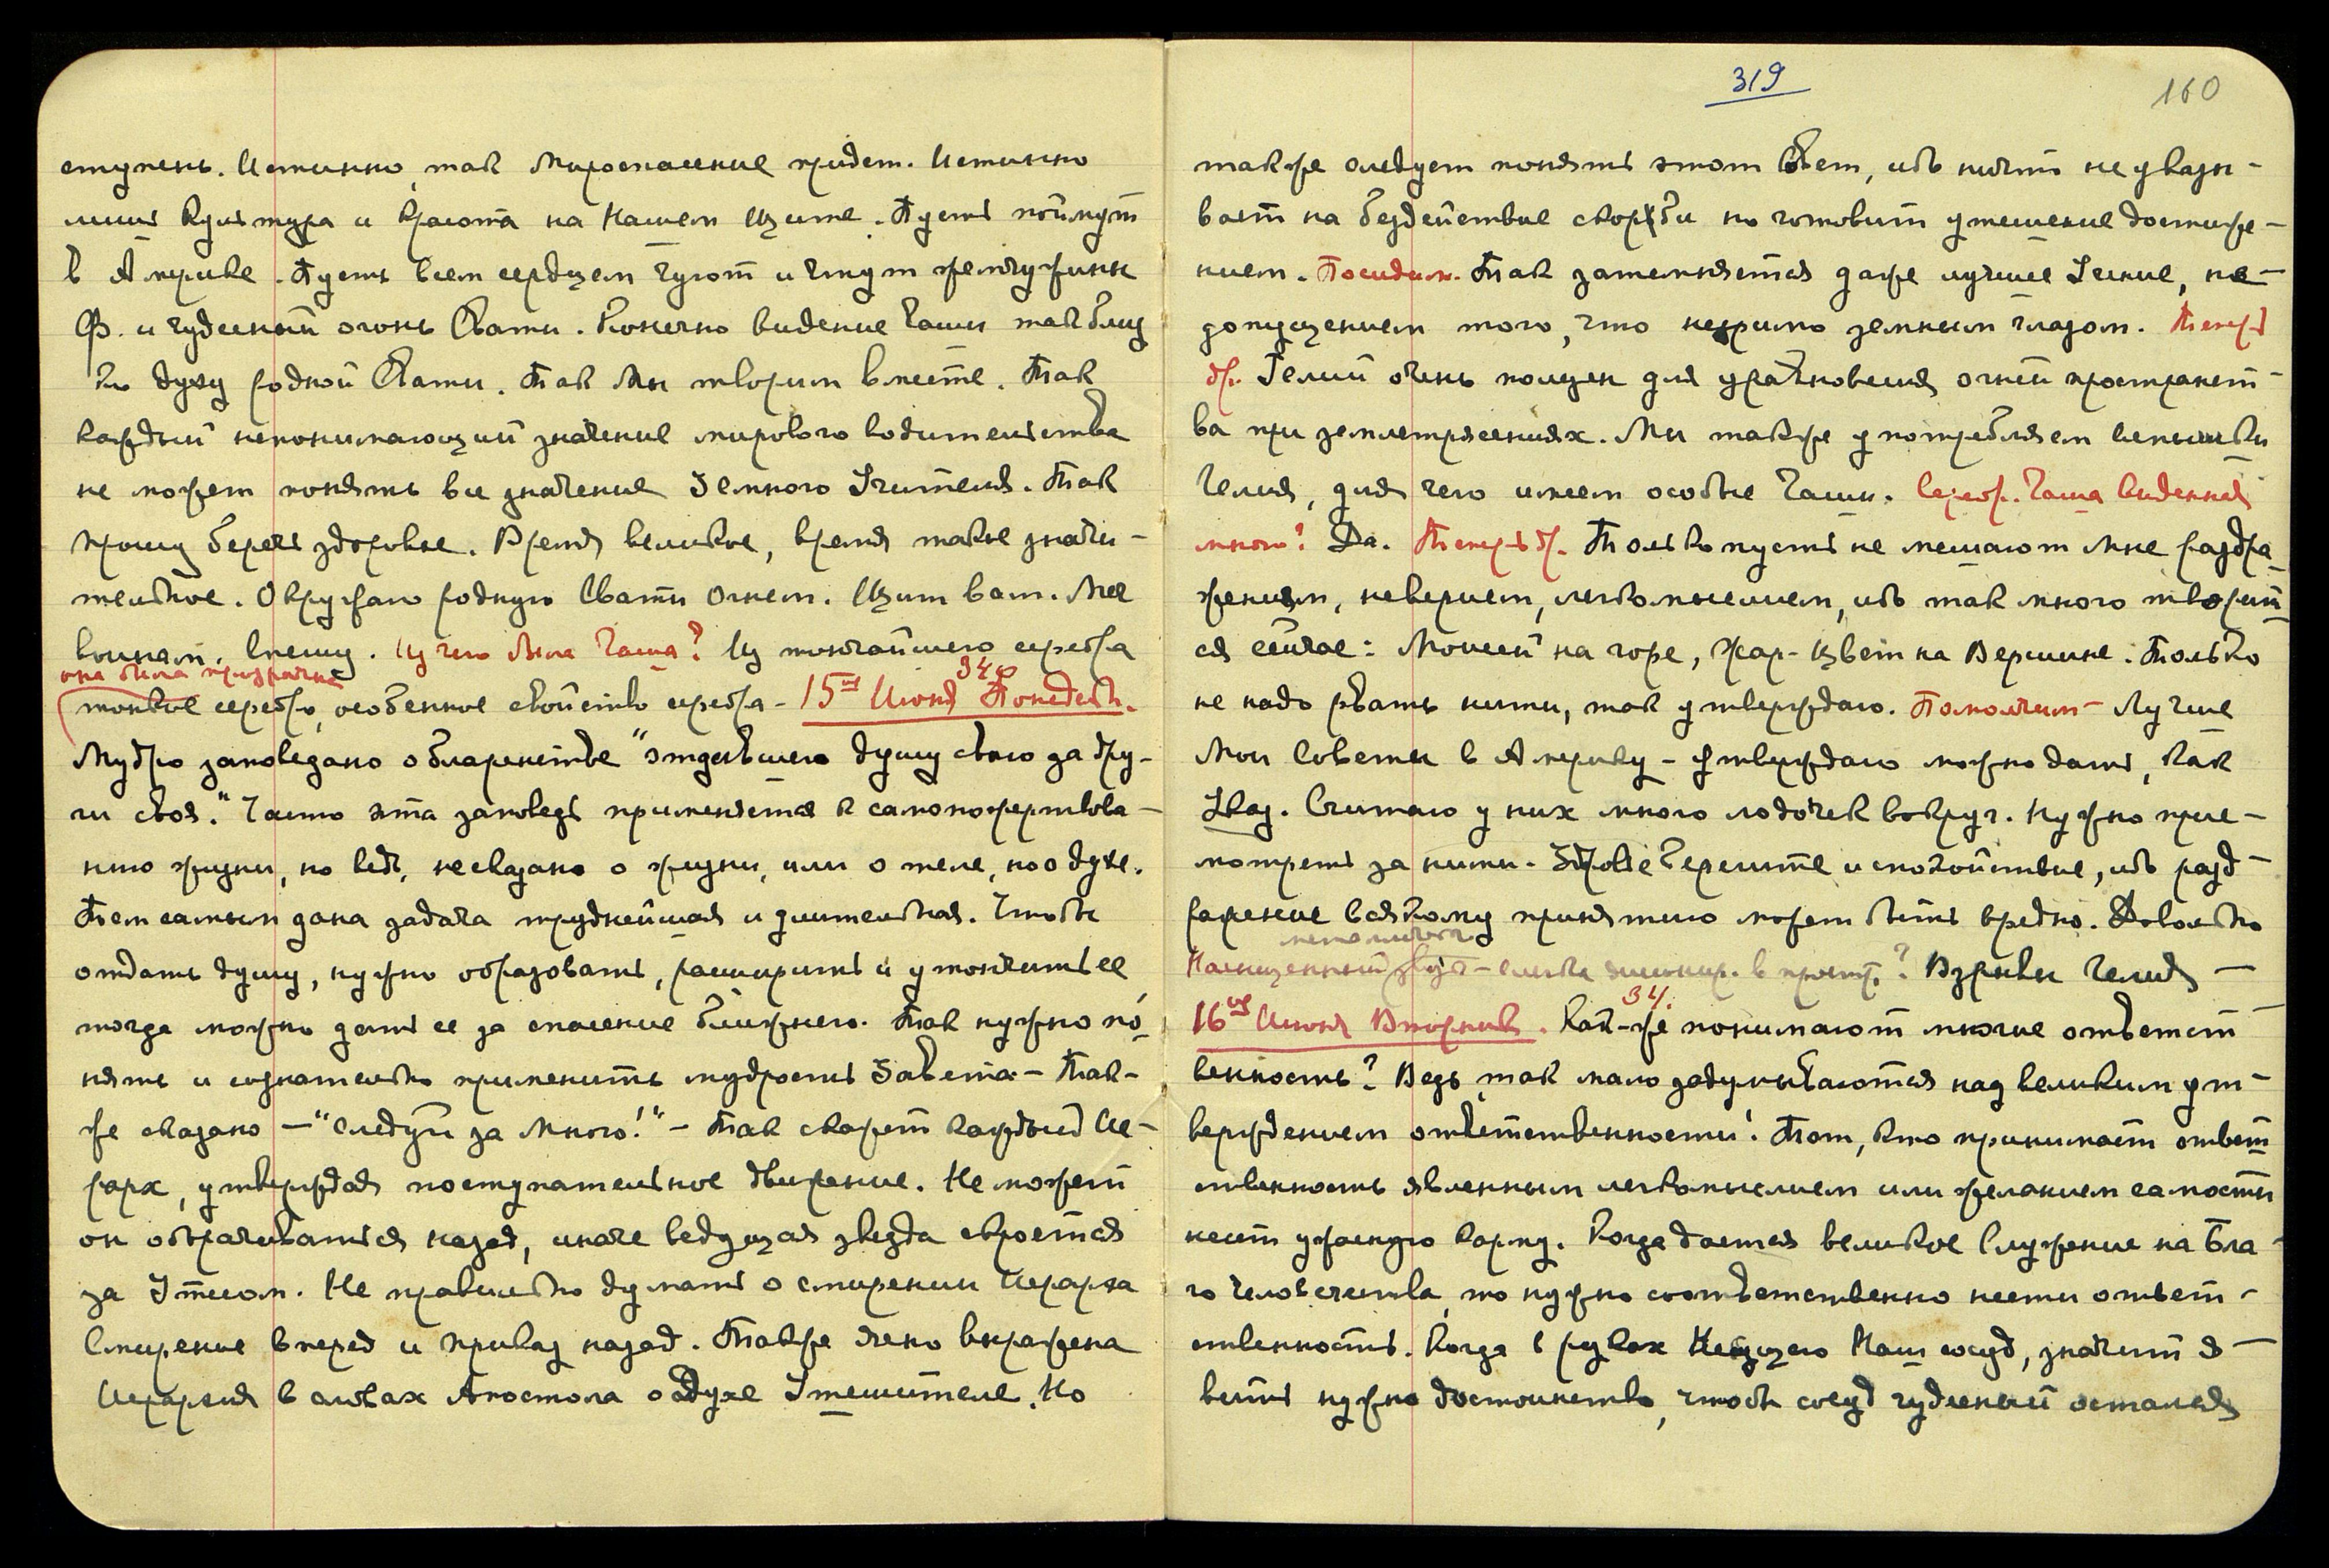 ступень. Истинно, так Мироспасение придет. Истинно
лишь Культура и Красота на Нашем Щите. Пусть поймут
в Америке. Пусть всем сердцем чуют и чтут жемчужины
Ф. и чудесный огонь Свати. Конечно видение Чаши так близ
ко духу родной Свати. Так Мы творим вместе. Так
каждый непонимающий значение мирового водительства
не может понять все значение Земного Учителя. Так
прошу беречь здоровье. Время великое, время такое значи-
тельное. Окружаю родную Свати Огнем. Щит вам. Меч
воинам. Спешу. Из чего была Чаша? Из тончайшего серебра
она была прозрачна
тонкое серебро, особенное свойство серебра - 15ое Июня 34 Понедельн.
Мудро заповедано о блаженстве "отдавшего душу свою за дру-
ги своя." Часто эта заповедь применяется к самопожертвова-
нию жизни, но ведь, не сказано о жизни, или о теле, но о духе.
Тем самым дана задача труднейшая и длительная. Чтобы
отдать душу, нужно образовать, расширить и утончить ее,
тогда можно дать ее за спасение ближнего. Так нужно по-
нять и сознательно применить мудрость Завета - Так-
же сказано - "следуй за Мною!" - Так скажет каждый Ие-
рарх, утверждая поступательное движение. Не может
он оборачиваться назад, иначе ведущая звезда скроется
за Утесом. Не правильно думать о смирении Иерарха
Смирение вперед и приказ назад. Также ясно выражена
Иерархия в словах Апостола о Духе Утешителе. Но
319
160
также следует понять этот Совет, ибо ничто не указы-
вает на бездействие скорби но готовит утешение достиже-
нием. Посидим. Так затемняется даже лучшее Учение, не-
допущением того, что незримо земным глазом. Теперь
др. Гелий очень полезен для уравновешия огней пространст-
ва при землетрясениях. Мы также употребляем вспышки
Гелия, для чего имеем особые Чаши. Серебр. Чаша виденная
мною? Да. Теперь др. Только пусть не мешают Мне раздра-
жением, неверием, легкомыслием, ибо так много творит
ся сейчас: Моисей на горе, Жар-Цвет на Вершине. Только
не надо рвать нити, так утверждаю. Помолчим - Лучше
Мои Советы в Америку - утверждаю можно дать, как
Указ. Считаю у них много лодочек вокруг. Нужно прис-
мотреть за ними. Здоровье берегите и спокойствие, ибо разд-
ражение всякому принятию может быть вредно. Довольно
Насыщенный звук - в простр.? Взрывы Гелия -
16ое Июня Вторник. 34. Как-же понимают многие ответст
венность? Ведь так мало задумываются над великим ут-
верждением ответственности! Тот, кто принимает ответ
ственность явленным легкомыслием или желанием самости
несет ужасную карму. Когда дается великое Служение на Бла-
го Человечества, то нужно соответственно нести ответ-
ственность. Когда в руках Несущего Наш сосуд, значит я-
вить нужно достоинство, чтобы сосуд чудесный остался